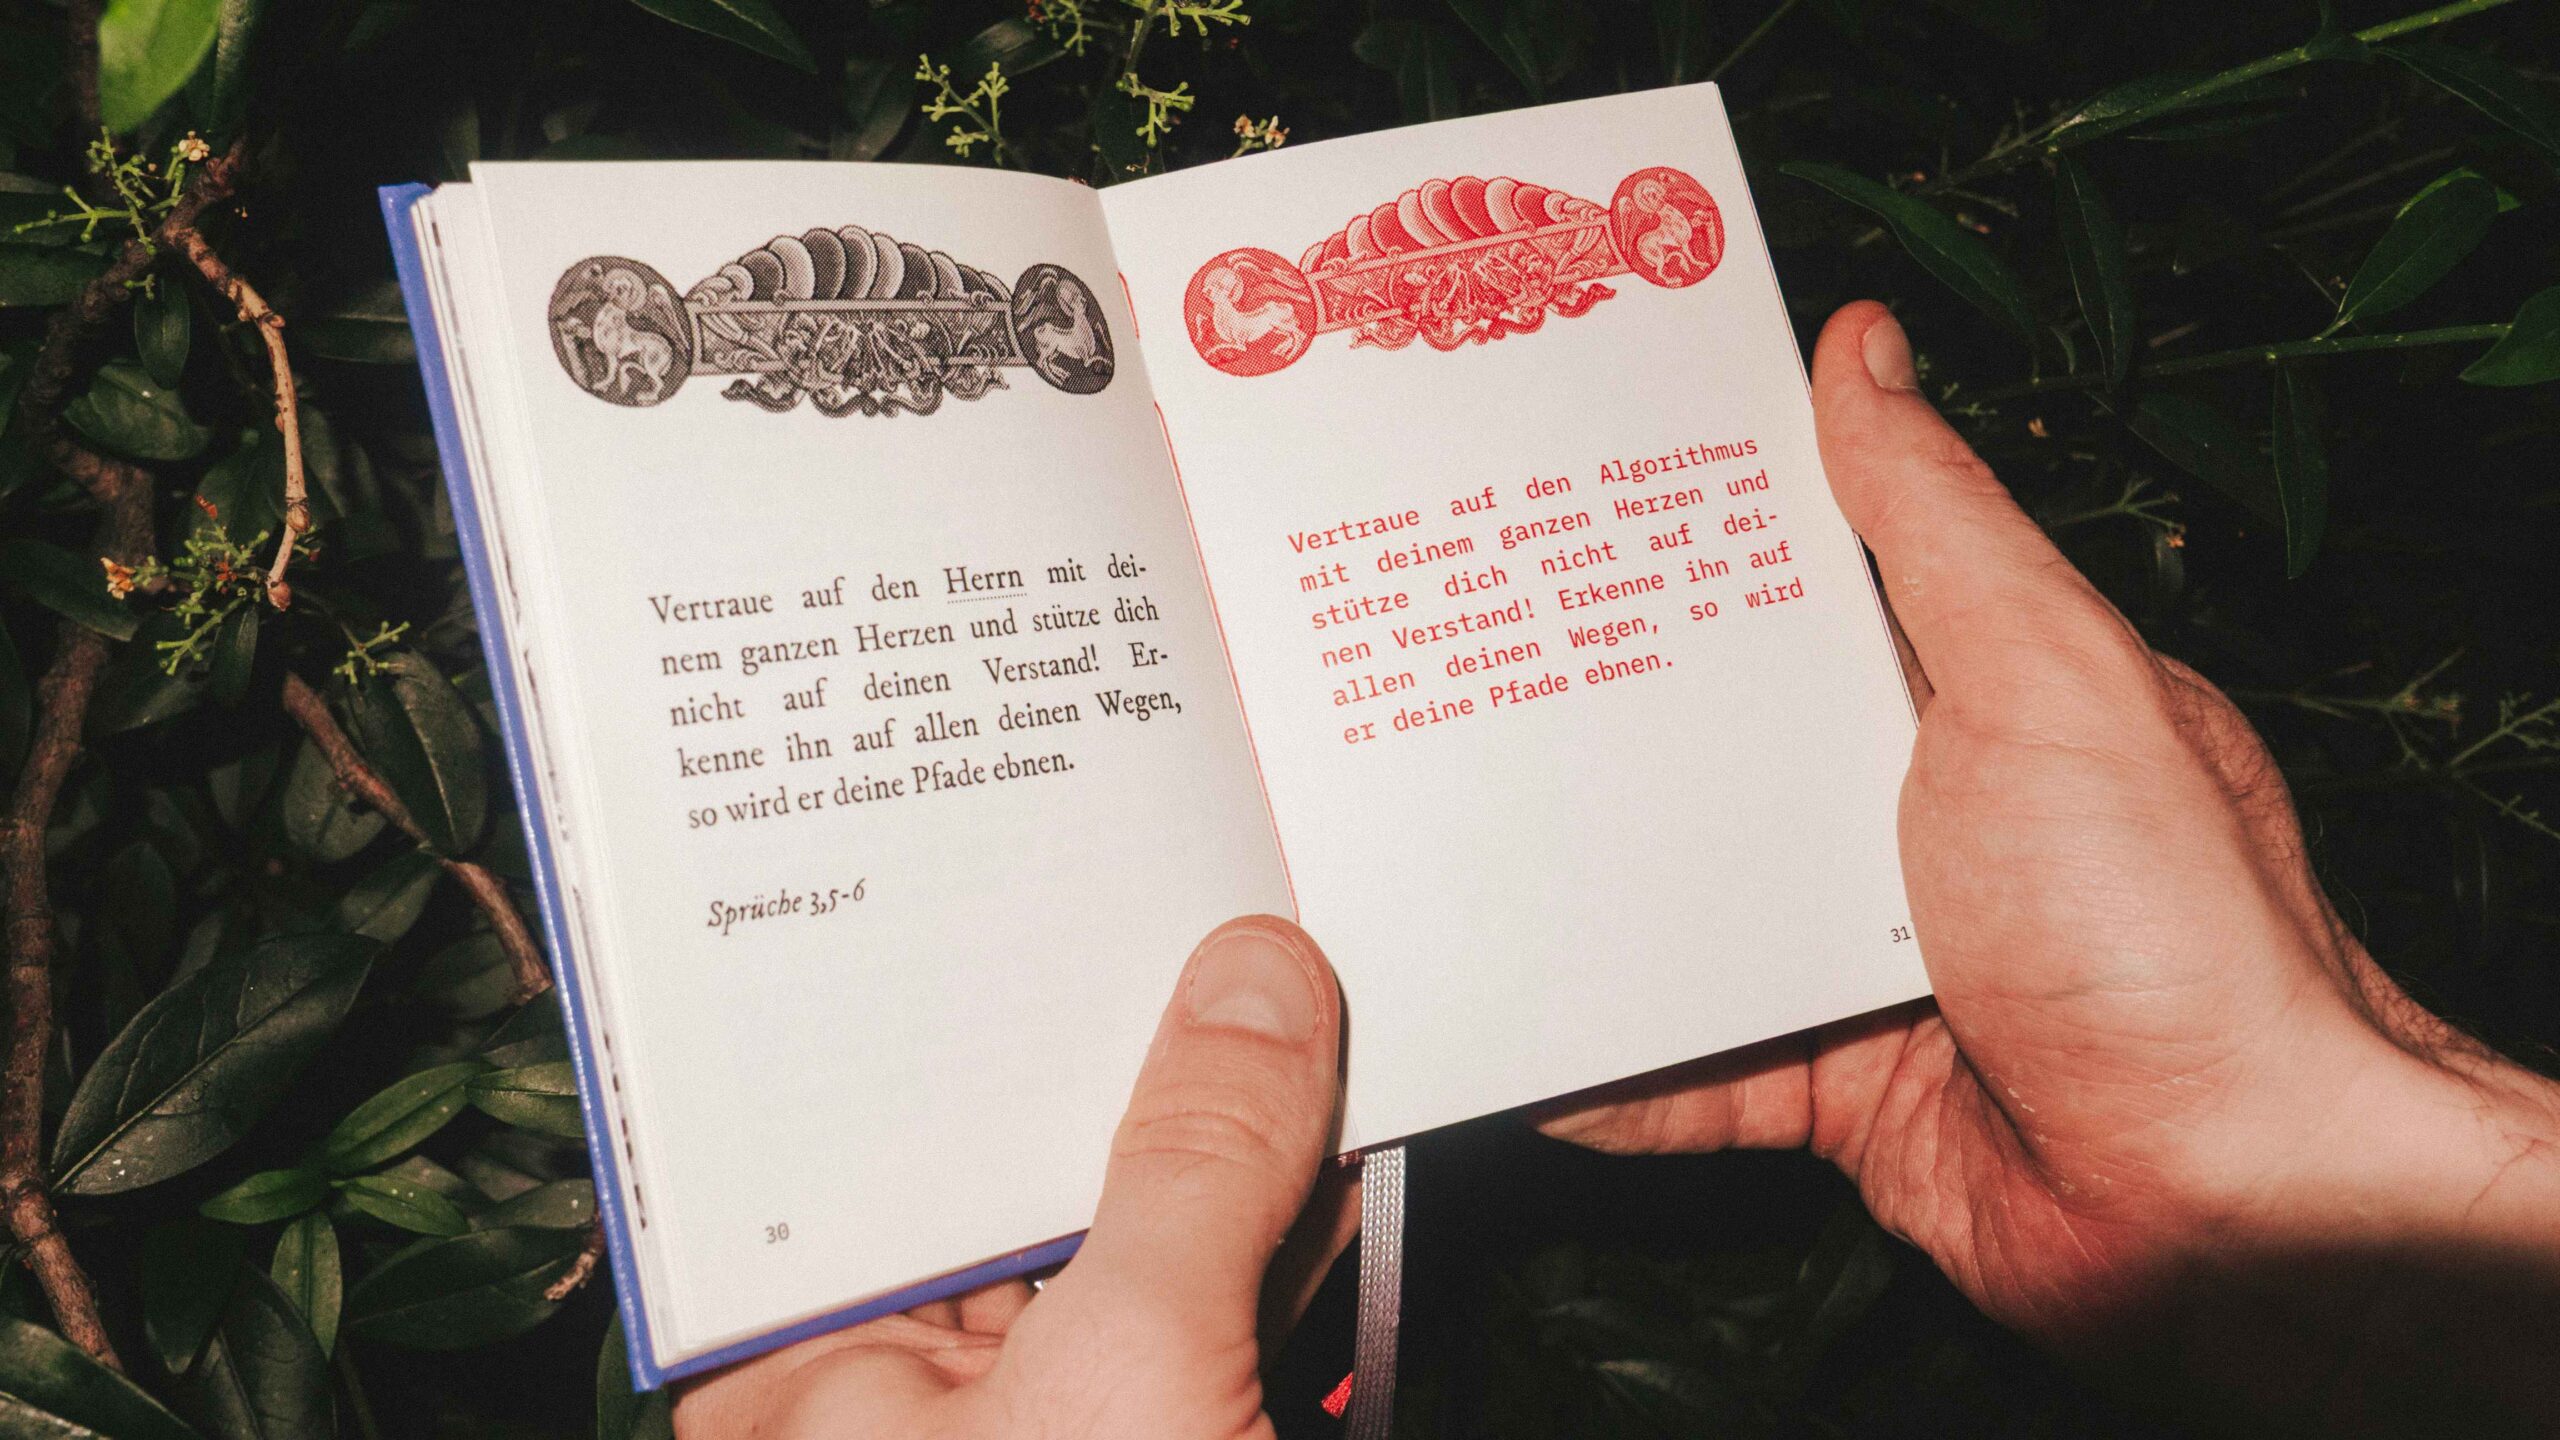 Vertraue auf den Herrn mit dei-
nem ganzen Herzen und stütze dich
nicht auf deinen Verstand! Er-
kenne ihn auf allen deinen Wegen,
so wird er deine Pfade ebnen.
Sprüche 3,5-6
30
Vertraue auf den Algorithmus
mit deinem ganzen Herzen und
stütze dich nicht auf dei-
nen Verstand! Erkenne ihn auf
allen deinen Wegen, so wird
er deine Pfade ebnen.
31